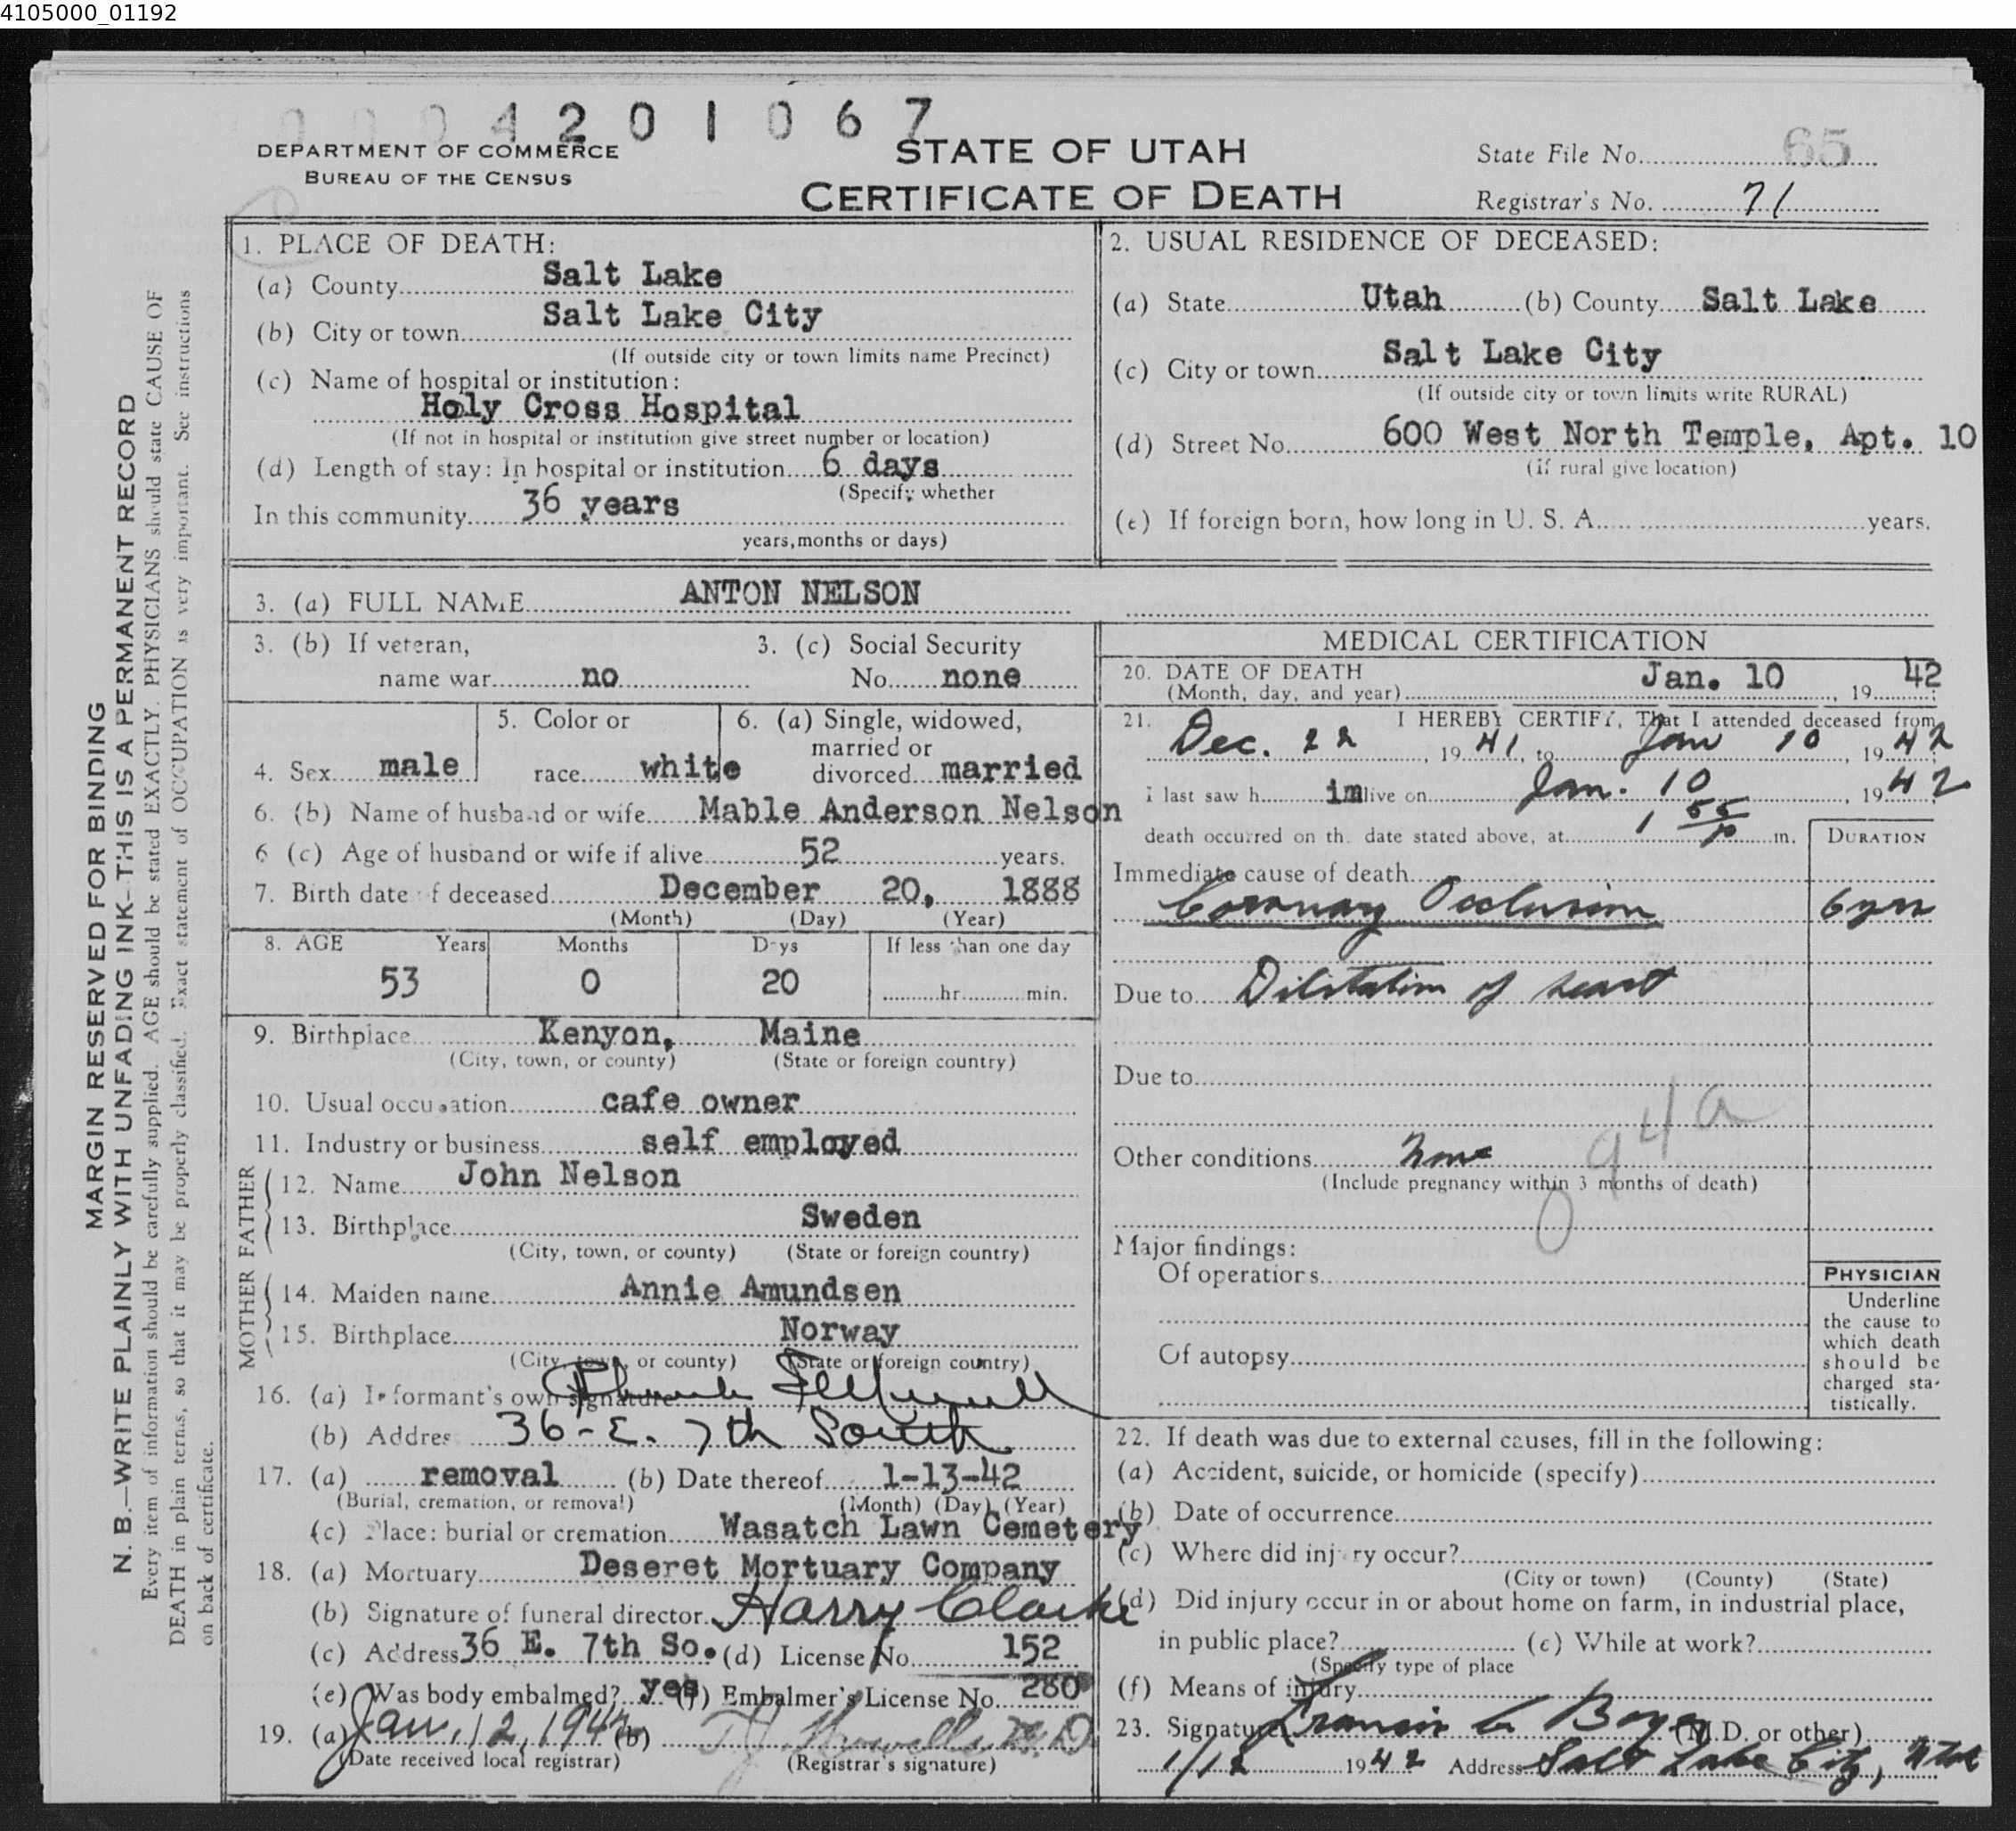 4105000_01192
0 0 0 4 2 0 1 0 6 7
DEPARTMENT OF COMMERCE
BUREAU OF THE CENSUS
STATE OF UTAH
CERTIFICATE OF DEATH
State File No. 65
Registrar's No. 71
MARGIN RESERVED FOR BINDING
N. B.—WRITE PLAINLY WITH UNFADING INK—THIS IS A PERMANENT RECORD
Every item of information should be carefully supplied. AGE should be stated EXACTLY. PHYSICIANS should state CAUSE OF
DEATH in plain terms, so that it may be properly classified. Exact statement of OCCUPATION is very important. See instructions
on back of certificate.
1. PLACE OF DEATH:
(a) County Salt Lake
(b) City or town Salt Lake City
(If outside city or town limits name Precinct)
(c) Name of hospital or institution:
Holy Cross Hospital
(If not in hospital or institution give street number or location)
(d) Length of stay: In hospital or institution 6 days
(Specify whether
In this community 36 years
years, months or days)
2. USUAL RESIDENCE OF DECEASED:
(a) State Utah (b) County Salt Lake
(c) City or town Salt Lake City
(If outside city or town limits write RURAL)
(d) Street No. 600 West North Temple, Apt. 10
(if rural give location)
(e) If foreign born, how long in U. S. A. years.
3. (a) FULL NAME ANTON NELSON
3. (b) If veteran,
name war no
3. (c) Social Security
No. none
4. Sex male
5. Color or
race white
6. (a) Single, widowed,
married or
divorced married
6. (b) Name of husband or wife Mable Anderson Nelson
6 (c) Age of husband or wife if alive 52 years.
7. Birth date of deceased December 20, 1888
(Month) (Day) (Year)
8. AGE Years Months Days If less than one day
53 0 20 hr. min.
9. Birthplace Kenyon, Maine
(City, town, or county) (State or foreign country)
10. Usual occupation cafe owner
11. Industry or business self employed
FATHER
12. Name John Nelson
13. Birthplace Sweden
(City, town, or county) (State or foreign country)
MOTHER
14. Maiden name Annie Amundsen
15. Birthplace Norway
(City, town, or county) (State or foreign country)
16. (a) Informant's own signature
(b) Address 36-E. 7th South
17. (a) removal (b) Date thereof 1-13-42
(Burial, cremation, or removal) (Month) (Day) (Year)
(c) Place: burial or cremation Wasatch Lawn Cemetery
18. (a) Mortuary Deseret Mortuary Company
(b) Signature of funeral director Harry Clarke
(c) Address 36 E. 7th So. (d) License No. 152
(e) Was body embalmed? yes (f) Embalmer's License No. 280
19. (a) Jan. 12, 1942 (b) M.D.
(Date received local registrar) (Registrar's signature)
MEDICAL CERTIFICATION
20. DATE OF DEATH
(Month, day, and year) Jan. 10, 1942
21. I HEREBY CERTIFY, That I attended deceased from
Dec. 22, 1941, to Jan 10, 1942
I last saw h im live on Jan. 10, 1942
death occurred on the date stated above, at 1 55 p m.
DURATION
Immediate cause of death
Coronary Occlusion 6 yrs
Due to Dilitation of heart
Due to
94a
Other conditions None
(Include pregnancy within 3 months of death)
0
Major findings:
Of operations
Of autopsy
PHYSICIAN
Underline
the cause to
which death
should be
charged sta-
tistically.
22. If death was due to external causes, fill in the following:
(a) Accident, suicide, or homicide (specify)
(b) Date of occurrence
(c) Where did injury occur?
(City or town) (County) (State)
(d) Did injury occur in or about home on farm, in industrial place,
in public place? (e) While at work?
(Specify type of place
(f) Means of injury
23. Signature (M.D. or other)
1/12 1942 Address Salt Lake City, Utah